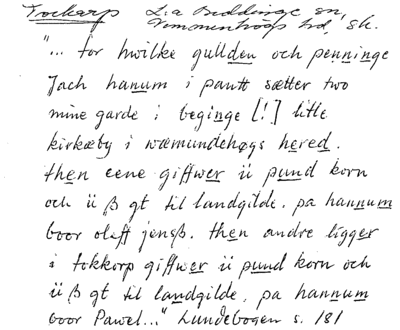 Tockarp L:a Beddinge sn,
Vemmenhögs hd, sk.
"... for hwilke gullden och penninge
Jach hanum i pantt sætter two
mine garde i beginge [!] litle
kirkæby i wæmundehøgs hered.
then eene giffwer ii pund korn
och ii ß gt til landgilde. pa hannum
boor oleff jensß. then andre ligger
i tokkorp giffwer ii pund korn och
ii ß gt til landgilde, pa hannum
boor Pawel..." Lundebogen s. 181